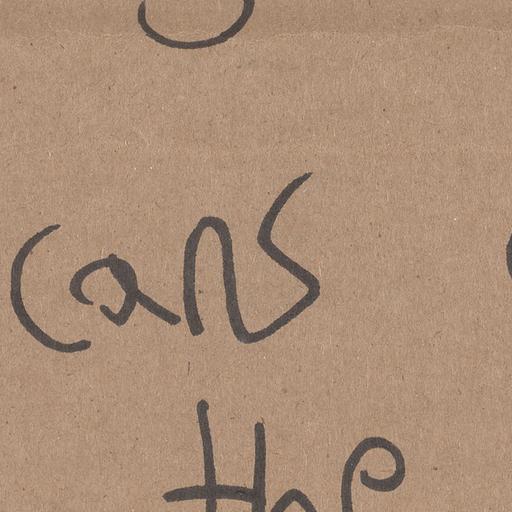 cans
the